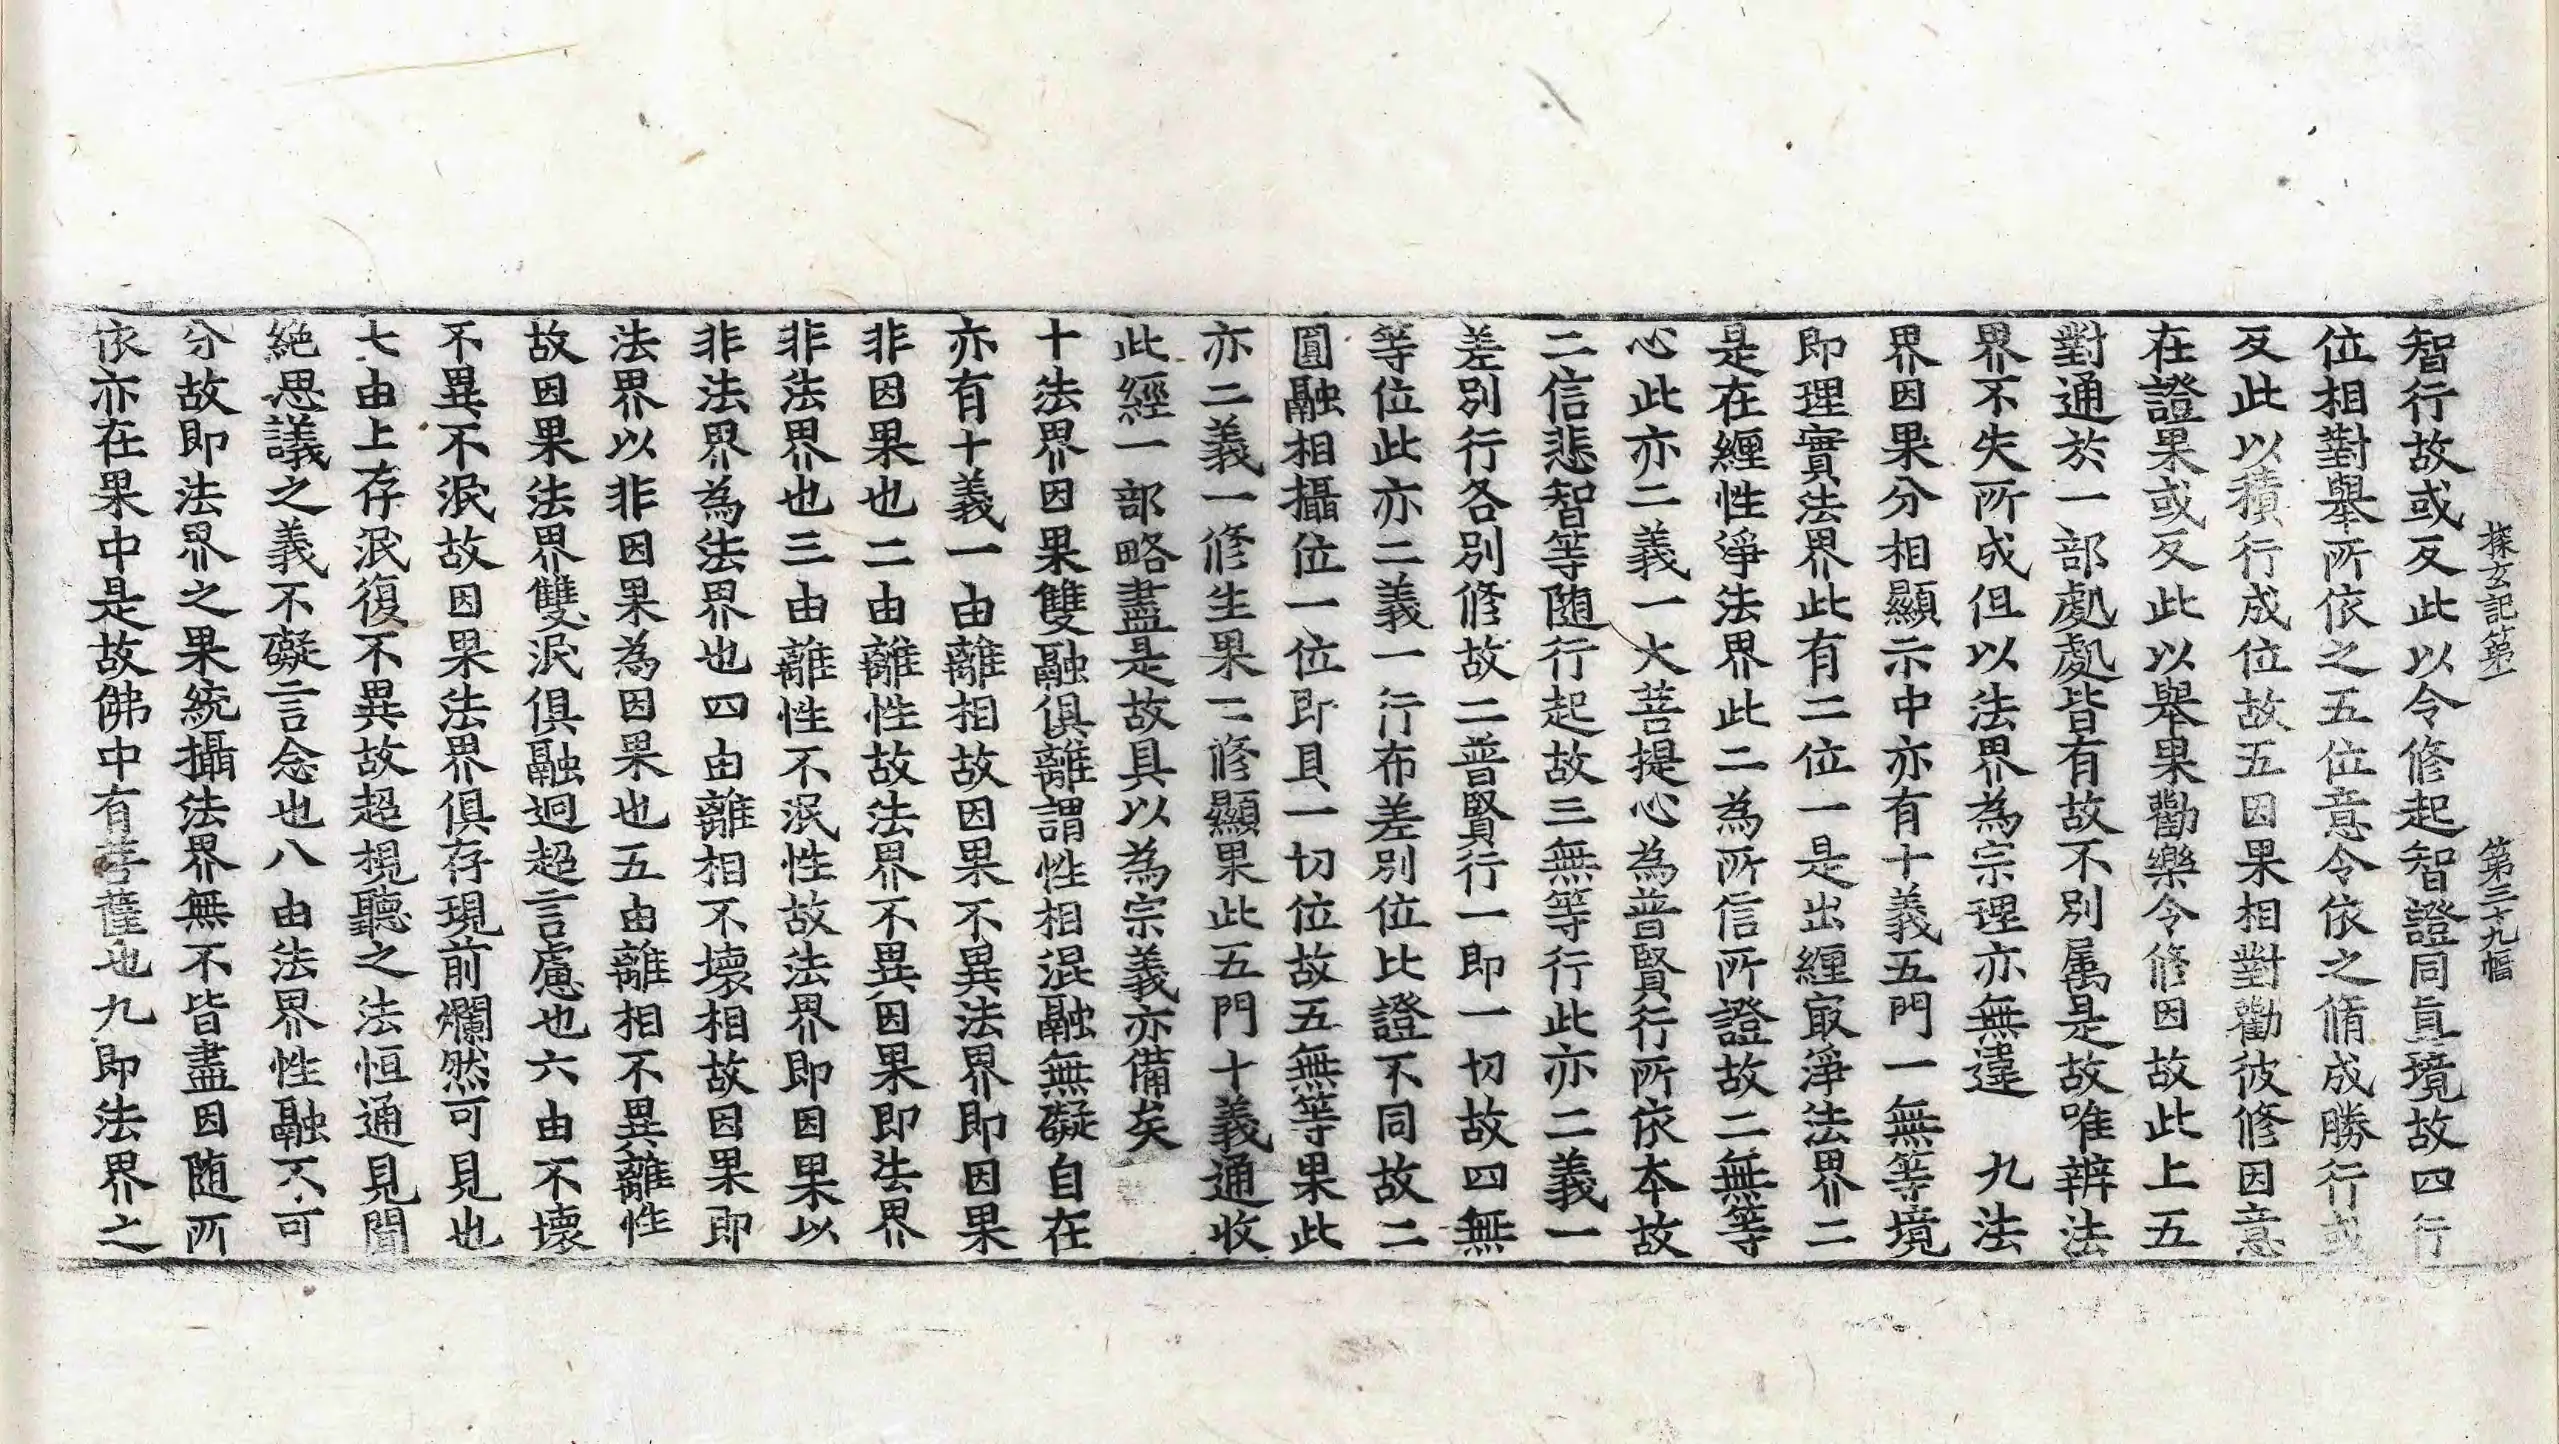 探玄記第一 第三十九幅
智行故或反此以令修起智證同眞境故四行
位相對舉所依之五位意令依之脩成勝行或
反此以積行成位故五因果相對勸彼修因意
在證果或反此以舉果勸樂令修因故此上五
對通於一部處處皆有故不別属是故唯辨法
界不失所成但以法界為宗理亦無違 九法
界因果分相顯示中亦有十義五門一無等境
即理實法界此有二位一是出纒㝡淨法界二
是在纒性淨法界此二為所信所證故二無等
心此亦二義一大菩提心為普賢行所依本故
二信悲智等随行起故三無等行此亦二義一
差別行各別修故二普賢行一即一切故四無
等位此亦二義一行布差別位比證不同故二
圓融相攝位一位即具一切位故五無等果此
亦二義一修生果二修顯果此五門十義通收
此經一部略盡是故具以為宗義亦備矣
十法界因果雙融俱離謂性相混融無礙自在
亦有十義一由離相故因果不異法界即因果
非因果也二由離性故法界不異因果即法界
非法界也三由離性不泯性故法界即因果以
非法界為法界也四由離相不壞相故因果即
法界以非因果為因果也五由離相不異離性
故因果法界雙泯俱融迥超言慮也六由不壞
不異不泯故因果法界俱存現前爛然可見也
七由上存泯復不異故超視聽之法恒通見聞
絶思議之義不礙言念也八由法界性融不可
分故即法界之果統攝法界無不皆盡因随所
依亦在果中是故佛中有菩薩也九即法界之